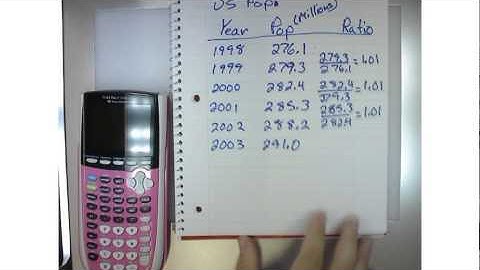 US Pop.
(Millions)
Year Pop Ratio
1998 276.1
1999 279.3 279.3/276.1 = 1.01
2000 282.4 282.4/279.3 = 1.01
2001 285.3 285.3/282.4 = 1.01
2002 288.2
2003 291.0